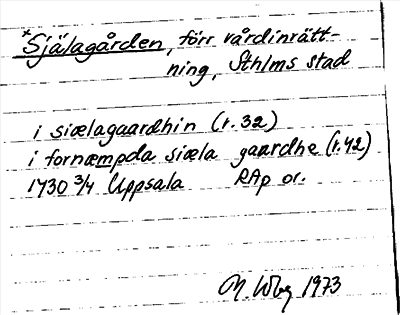 *Själagården, förr vårdinrätt-
ning, Sthlms stad
i siælagaardhin (r. 32)
i fornæmpda siæla gaardhe (r. 42)
1430 3/4 Uppsala RAp or.
1973